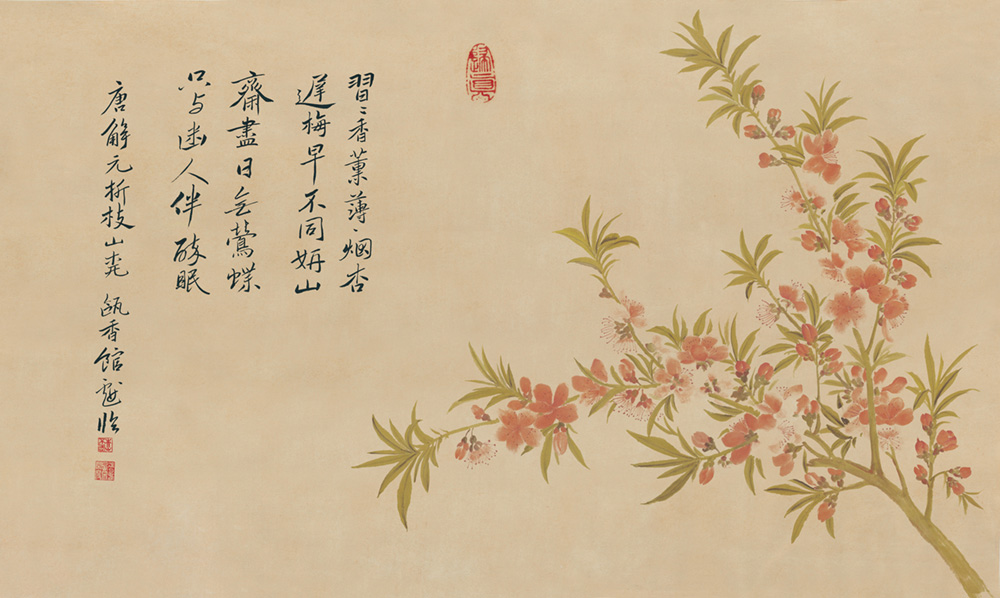 習〻香薰薄〻烟杏
遲梅早不同妍山
齋盡日無鶯蝶
只与幽人伴醉眠
唐解元折枝山桃 甌香館壽臨